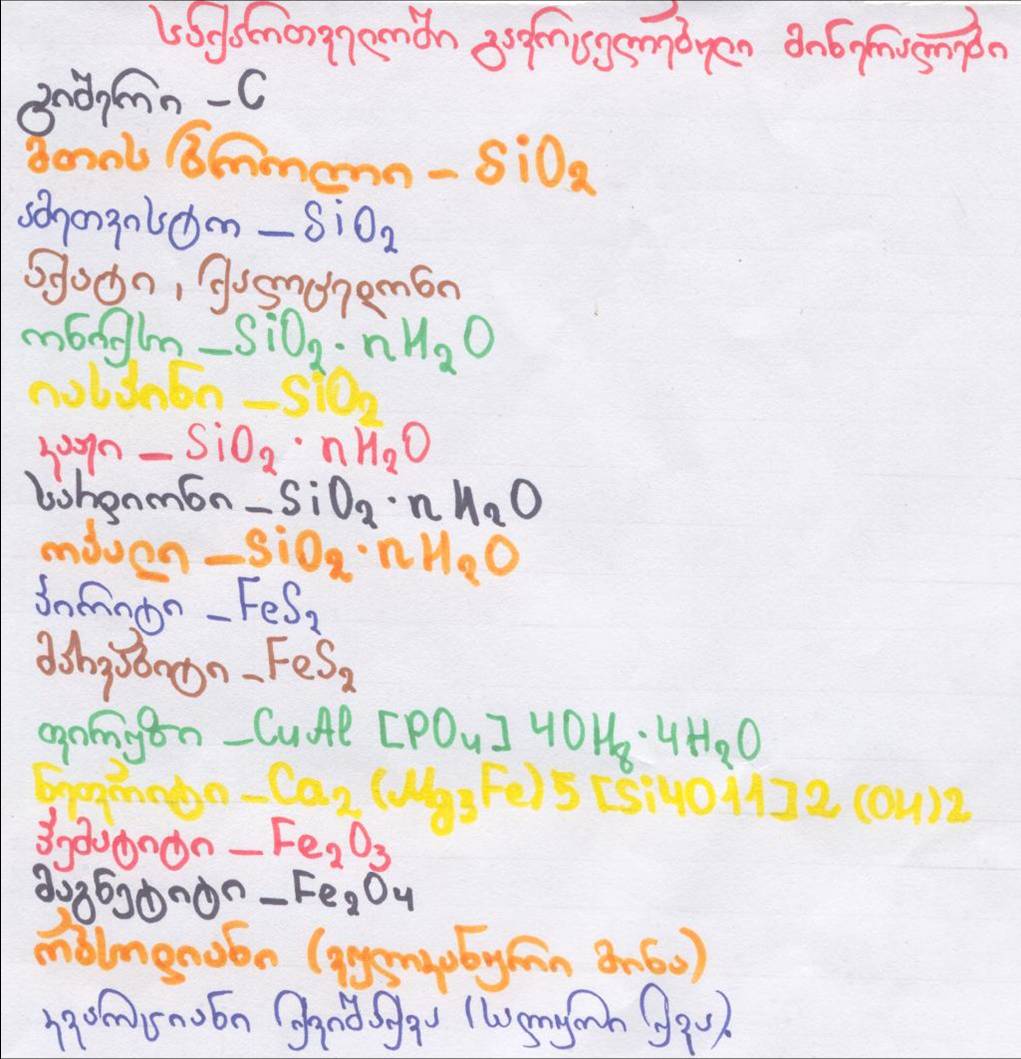 საქართველოში გავრცელებული მინერალები
გიშერი – C
მთის ბროლი – SiO₂
ამეთვისტო – SiO₂
აქატი, ქალცედონი
ონიქსი – SiO₂·nH₂O
იასპინი – SiO₂
კაჟი – SiO₂·nH₂O
სარდიონი – SiO₂·nH₂O
ოპალი – SiO₂·nH₂O
პირიტი – FeS₂
მარკაზიტი – FeS₂
ფირუზი – CuAl [PO₄] 4OH₈·4H₂O
ნეფრიტი – Ca₂ (Mg₃Fe)5 [Si4O11]2 (OH)2
ჰემატიტი – Fe₂O₃
მაგნეტიტი – Fe₂O₄
ობსიდიანი (ვულკანური მინა)
კვარციანი ქვიშაქვა (სალესი ქვა).